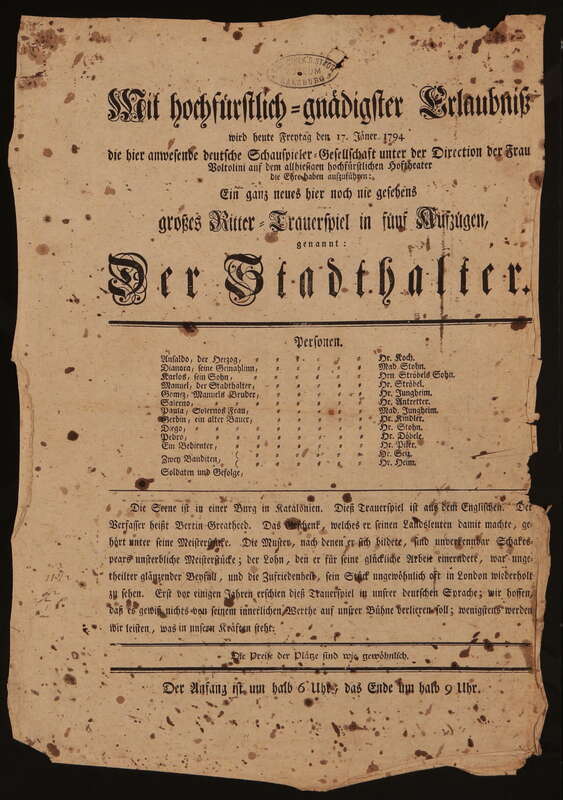 MUSEUM
SALZBURG
Mit hochfürstlich-gnädigster Erlaubniß
wird heute Freytag den 17. Jäner 1794
die hier anwesende deutsche Schauspieler-Gesellschaft unter der Direction der Frau
Voltolini auf dem allhiesigen hochfürstlichen Hoftheater
die Ehre haben aufzuführen:
Ein ganz neues hier noch nie gesehens
großes Ritter-Trauerspiel in fünf Aufzügen,
genannt:
Der Stadthalter.
Personen.
Ansaldo, der Herzog, Hr. Koch.
Dianora, seine Gemahlinn, Mad. Stohn.
Karlos, sein Sohn, Hrn Ströbels Sohn.
Manuel, der Stadthalter, Hr. Ströbel.
Gomez, Manuels Bruder, Hr. Jungheim.
Salerno, Hr. Antretter.
Paula, Solernos Frau, Mad. Jungheim.
Zerbin, ein alter Bauer, Hr. Kindler.
Diego, Hr. Stohn.
Pedro, Hr. Döbele.
Ein Bedienter, Hr. Piker.
Zwey Banditen, Hr. Geiz.
Hr. Heim.
Soldaten und Gefolge,
Die Scene ist in einer Burg in Katalonien. Dieß Trauerspiel ist aus dem Englischen. Der
Verfasser heißt Bertin Greatheed. Das Geschenk, welches er seinen Landsleuten damit machte, ge-
hört unter seine Meisterstücke. Die Muster, nach denen er sich bildete, sind unverkennbar Schakes-
pears unsterbliche Meisterstücke; der Lohn, den er für seine glückliche Arbeit einerndete, war unge-
theilter glänzender Beyfall, und die Zufriedenheit, sein Stück ungewöhnlich oft in London wiederholt
zu sehen. Erst vor einigen Jahren erschien dieß Trauerspiel in unsrer deutschen Sprache; wir hoffen,
daß es gewiß nichts von seinem innerlichen Werthe auf unsrer Bühne verlieren soll; wenigstens werden
wir leisten, was in unsern Kräften steht.
Die Preise der Plätze sind wie gewöhnlich.
Der Anfang ist um halb 6 Uhr; das Ende um halb 9 Uhr.